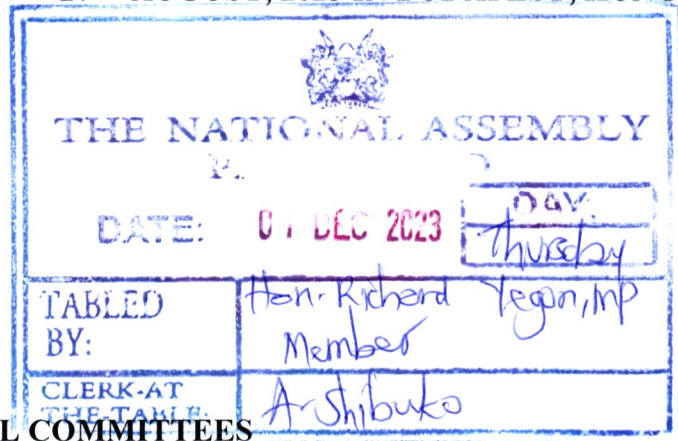 THE NATIONAL ASSEMBLY
DATE: 07 DEC 2023 DAY:
Thursday
TABLED Hon. Richard Yegon, MP
BY: Member
CLERK-AT
THE-TABLE: A. Shibuko
L COMMITTEES